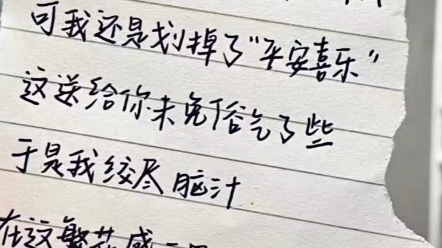 可我还是划掉了"平安喜乐"
这送给你未免俗气了些
于是我绞尽脑汁
在这繁花盛